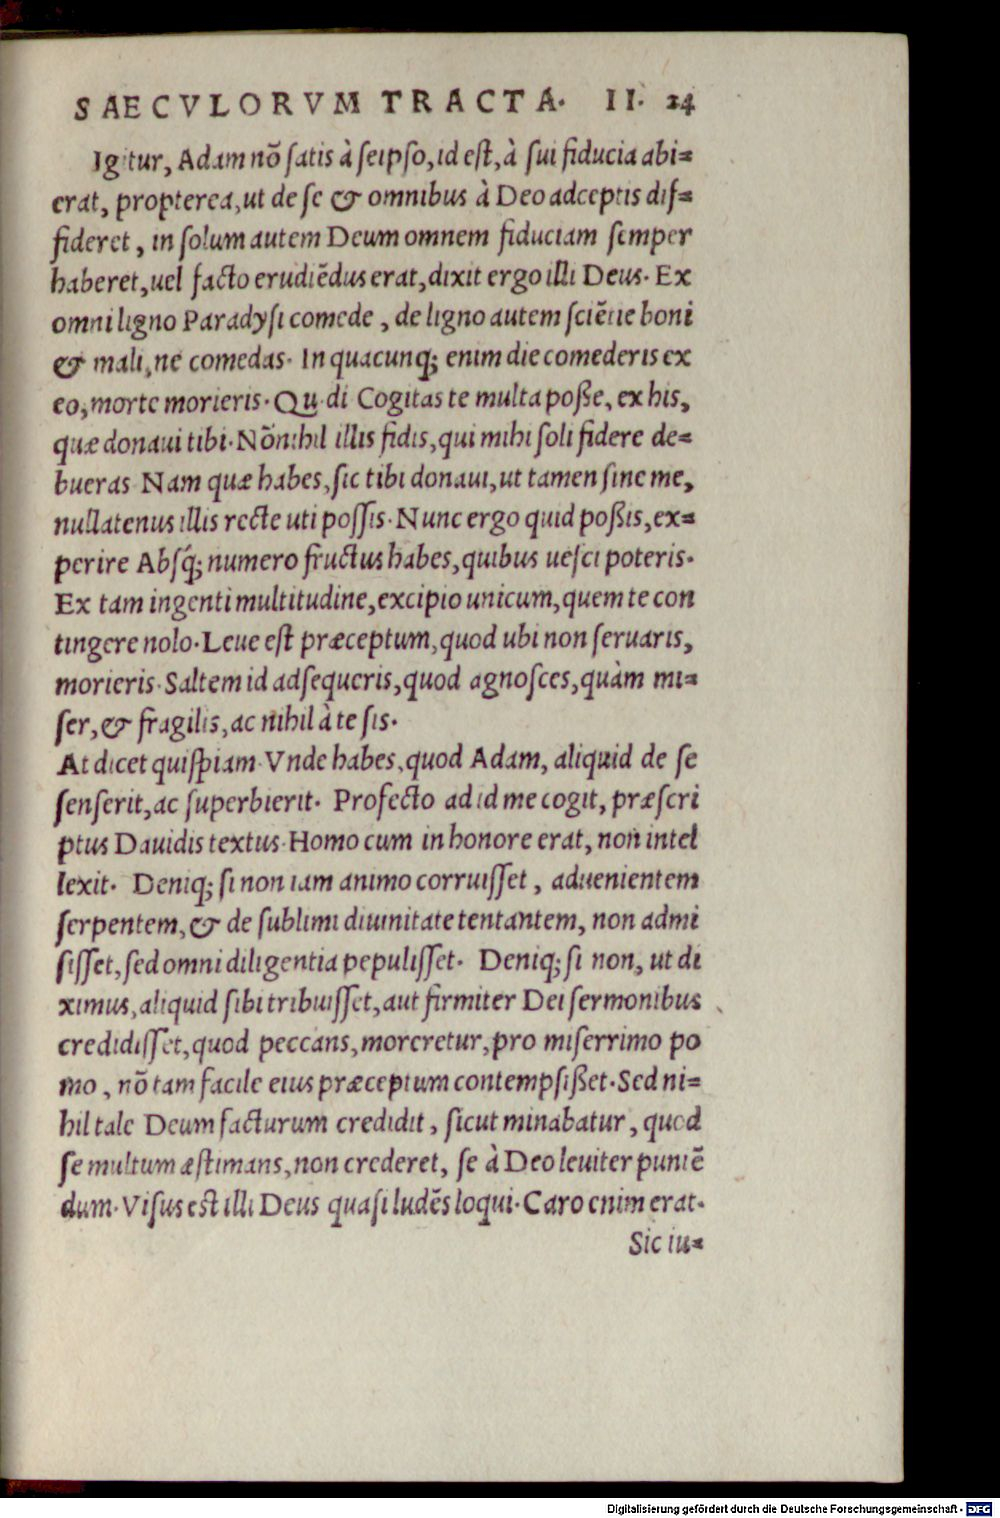 SAECVLORVM TRACTA. II. 24
Igitur, Adam nõ satis à seipso, id est, à sui fiducia abi=
erat, propterea, ut de se & omnibus à Deo adceptis dif=
fideret, in solum autem Deum omnem fiduciam semper
haberet, uel facto erudiẽdus erat, dixit ergo illi Deus. Ex
omni ligno Paradysi comede, de ligno autem sciẽtie boni
& mali, ne comedas. In quacunq; enim die comederis ex
eo, morte morieris. Qu di Cogitas te multa poße, ex his,
quæ donaui tibi. Nõnihil illis fidis, qui mihi soli fidere de=
bueras Nam quæ habes, sic tibi donaui, ut tamen sine me,
nullatenus illis recte uti possis. Nunc ergo quid poßis, ex=
perire Absq́; numero fructus habes, quibus uesci poteris.
Ex tam ingenti multitudine, excipio unicum, quem te con
tingere nolo. Leue est præceptum, quod ubi non seruaris,
morieris. Saltem id adsequeris, quod agnosces, quàm mi=
ser, & fragilis, ac nihil à te sis.
At dicet quispiam. Vnde habes, quod Adam, aliquid de se
senserit, ac superbierit. Profecto ad id me cogit, præscri
ptus Dauidis textus. Homo cum in honore erat, non intel
lexit. Deniq; si non iam animo corruisset, aduenientem
serpentem, & de sublimi diuinitate tentantem, non admi
sisset, sed omni diligentia pepulisset. Deniq; si non, ut di
ximus, aliquid sibi tribuisset, aut firmiter Dei sermonibus
credidisset, quod peccans, moreretur, pro miserrimo po
mo, nõ tam facile eius præceptum contempsißet. Sed ni=
hil tale Deum facturum credidit, sicut minabatur, quod
se multum æstimans, non crederet, se à Deo leuiter puniẽ
dum. Visus est illi Deus quasi ludẽs loqui. Caro enim erat.
Sic iu=
Digitalisierung gefördert durch die Deutsche Forschungsgemeinschaft - DFG